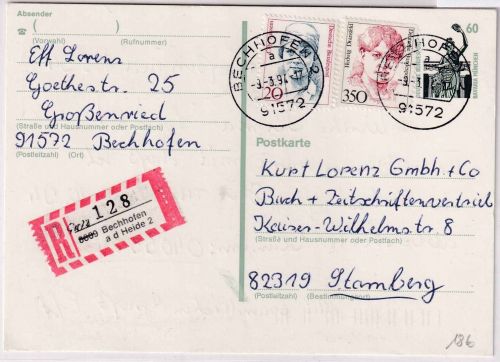 Absender
(Vorwahl) (Rufnummer)
Eff Lorenz
Goethestr. 25
Großenried
(Straße und Hausnummer oder Postfach)
91572 Bechhofen
(Postleitzahl) (Ort)
128
8809 Bechhofen
a d Heide 2
R
Deutsche Bundespost
20
Hedwig Dransfeld
350
60
BECHHOFEN 2
a
-3.3.94-17
91572
a
91572
Postkarte
Kurt Lorenz Gmbh + Co
Buch + Zeitschriftenvertrieb
Kaiser-Wilhelmstr. 8
(Straße und Hausnummer oder Postfach)
82319 Starnberg
(Postleitzahl) (Bestimmungsort)
186